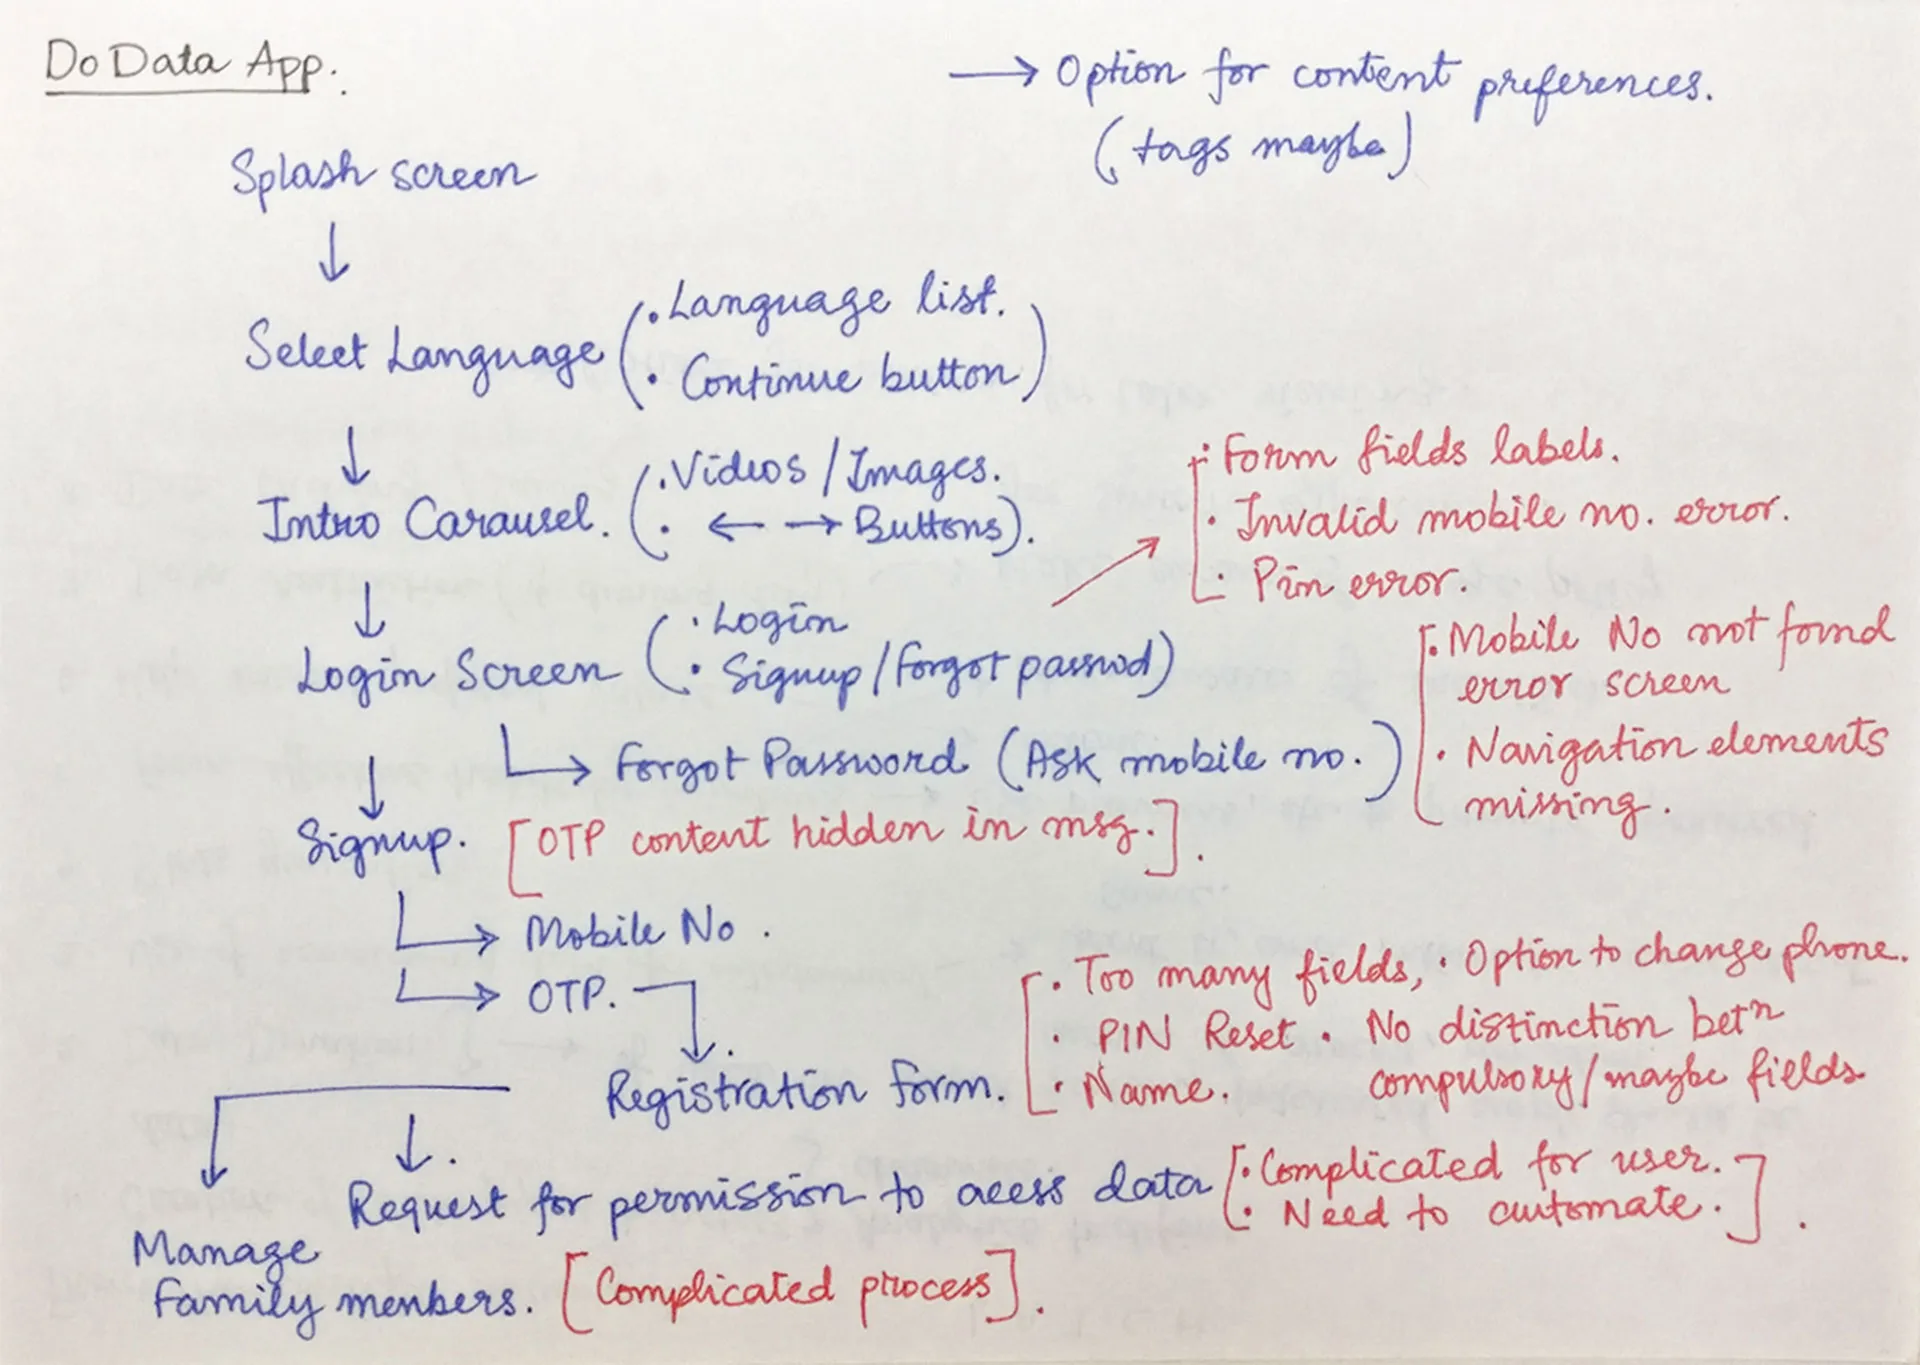 Do Data App.
→ Option for content preferences.
(tags maybe)
Splash screen
↓
Select Language (• Language list.
• Continue button)
↓
Intro Carausel. (• Videos / Images.
• ← → Buttons).
↓
Login Screen (• Login
• Signup / Forgot passwd)
↗ [• Form fields labels.
• Invalid mobile no. error.
• Pin error.
↳ Forgot Password (Ask mobile no.)
[• Mobile No not found
error screen
• Navigation elements
missing.
↓
Signup. [OTP content hidden in msg.].
↳ Mobile No.
↳ OTP.
↓.
Registration form. [• Too many fields, • Option to change phone.
• PIN Reset • No distinction betⁿ
• Name. compulsory / maybe fields
↓ ↓.
Request for permission to acess data [• Complicated for user.
• Need to automate.].
Manage
Family members. [Complicated process].